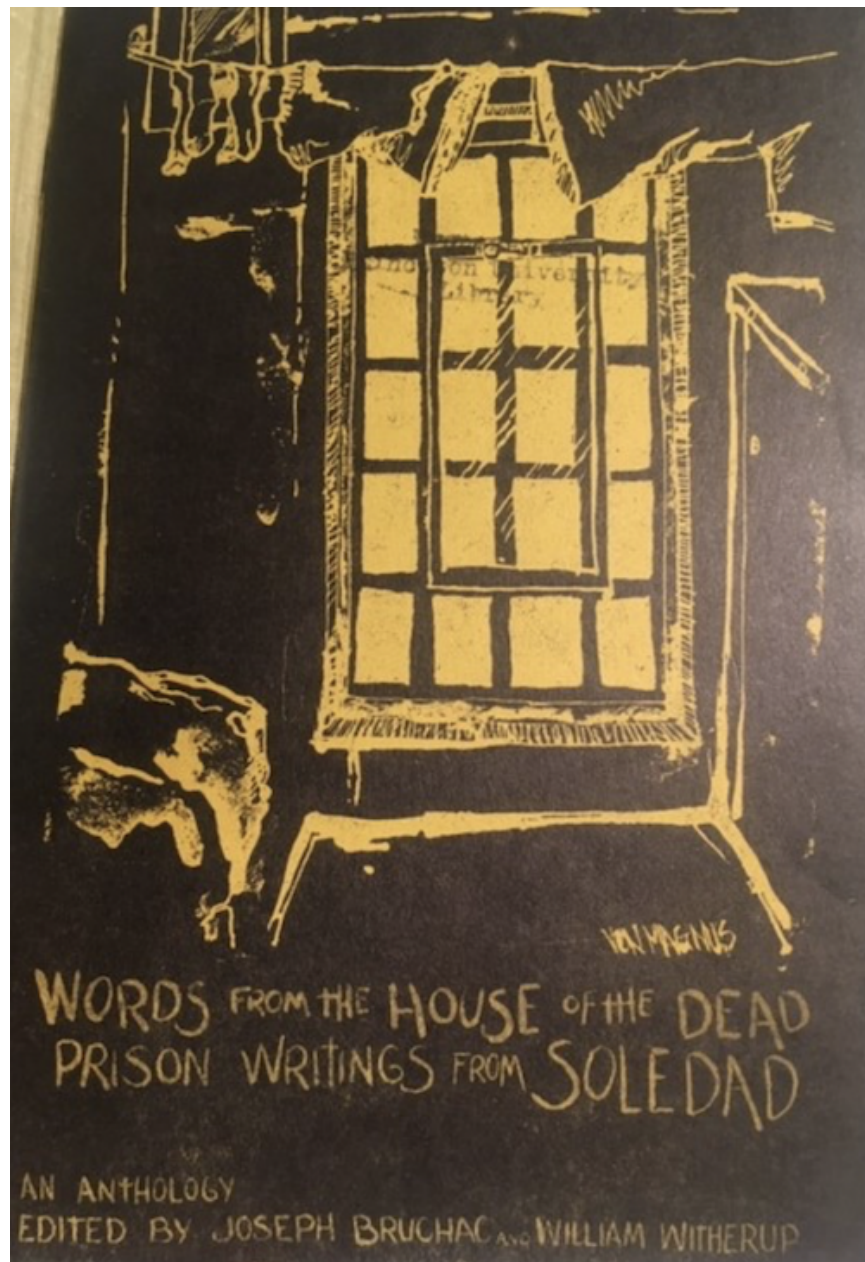 University
Library
VON MAGNUS
WORDS FROM THE HOUSE OF THE DEAD
PRISON WRITINGS FROM SOLEDAD
AN ANTHOLOGY
EDITED BY JOSEPH BRUCHAC AND WILLIAM WITHERUP